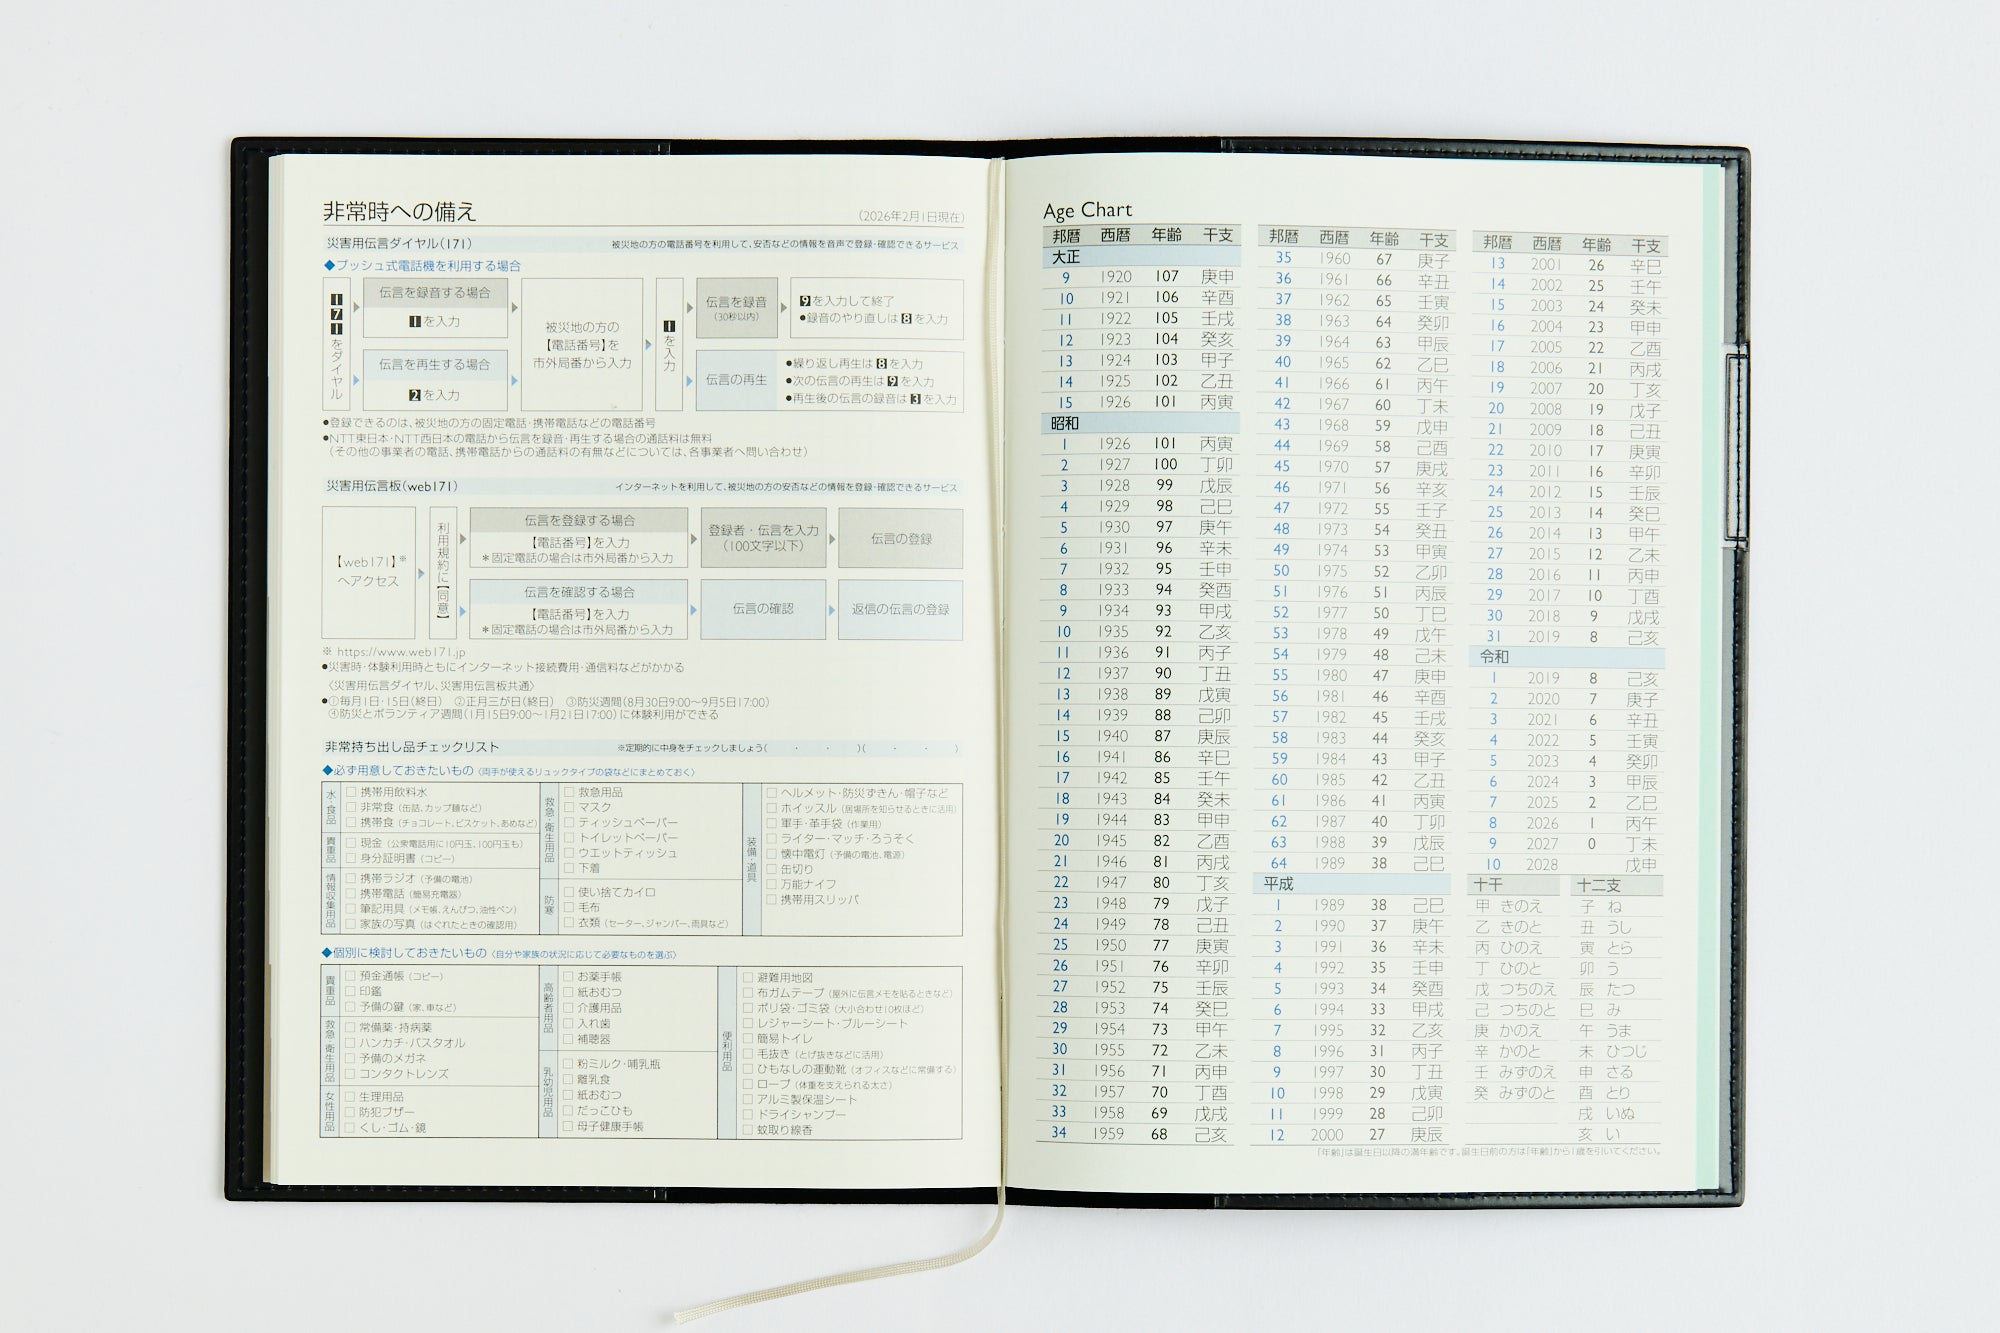 非常時への備え
(2026年2月1日現在)
災害用伝言ダイヤル(171)
被災地の方の電話番号を利用して、安否などの情報を音声で登録・確認できるサービス
◆プッシュ式電話機を利用する場合
171をダイヤル
伝言を録音する場合
1を入力
伝言を再生する場合
2を入力
被災地の方の
【電話番号】を
市外局番から入力
1を入力
伝言を録音
(30秒以内)
9を入力して終了
●録音のやり直しは8を入力
伝言の再生
●繰り返し再生は8を入力
●次の伝言の再生は9を入力
●再生後の伝言の録音は3を入力
●登録できるのは、被災地の方の固定電話・携帯電話などの電話番号
●NTT東日本・NTT西日本の電話から伝言を録音・再生する場合の通話料は無料
(その他の事業者の電話、携帯電話からの通話料の有無などについては、各事業者へ問い合わせ)
災害用伝言板(web171)
インターネットを利用して、被災地の方の安否などの情報を登録・確認できるサービス
【web171】※
へアクセス
利用規約に【同意】
伝言を登録する場合
【電話番号】を入力
＊固定電話の場合は市外局番から入力
登録者・伝言を入力
(100文字以下)
伝言の登録
伝言を確認する場合
【電話番号】を入力
＊固定電話の場合は市外局番から入力
伝言の確認
返信の伝言の登録
※ https://www.web171.jp
●災害時・体験利用時ともにインターネット接続費用・通信料などがかかる
〈災害用伝言ダイヤル、災害用伝言板共通〉
●①毎月1日・15日(終日) ②正月三が日(終日) ③防災週間(8月30日9:00〜9月5日17:00)
④防災とボランティア週間(1月15日9:00〜1月21日17:00)に体験利用ができる
非常持ち出し品チェックリスト
※定期的に中身をチェックしましょう( ・ ・ )( ・ ・ )
◆必ず用意しておきたいもの〈両手が使えるリュックタイプの袋などにまとめておく〉
水・食品
□携帯用飲料水
□非常食(缶詰、カップ麺など)
□携帯食(チョコレート、ビスケット、あめなど)
貴重品
□現金(公衆電話用に10円玉、100円玉も)
□身分証明書(コピー)
情報収集用品
□携帯ラジオ(予備の電池)
□携帯電話(簡易充電器)
□筆記用具(メモ帳、えんぴつ、油性ペン)
□家族の写真(はぐれたときの確認用)
救急・衛生用品
□救急用品
□マスク
□ティッシュペーパー
□トイレットペーパー
□ウエットティッシュ
□下着
防寒
□使い捨てカイロ
□毛布
□衣類(セーター、ジャンパー、雨具など)
装備・道具
□ヘルメット・防災ずきん・帽子など
□ホイッスル(居場所を知らせるときに活用)
□軍手・革手袋(作業用)
□ライター・マッチ・ろうそく
□懐中電灯(予備の電池、電源)
□缶切り
□万能ナイフ
□携帯用スリッパ
◆個別に検討しておきたいもの〈自分や家族の状況に応じて必要なものを選ぶ〉
貴重品
□預金通帳(コピー)
□印鑑
□予備の鍵(家、車など)
救急・衛生用品
□常備薬・持病薬
□ハンカチ・バスタオル
□予備のメガネ
□コンタクトレンズ
女性用品
□生理用品
□防犯ブザー
□くし・ゴム・鏡
高齢者用品
□お薬手帳
□紙おむつ
□介護用品
□入れ歯
□補聴器
乳幼児用品
□粉ミルク・哺乳瓶
□離乳食
□紙おむつ
□だっこひも
□母子健康手帳
便利用品
□避難用地図
□布ガムテープ(屋外に伝言メモを貼るときなど)
□ポリ袋・ゴミ袋(大小合わせ10枚ほど)
□レジャーシート・ブルーシート
□簡易トイレ
□毛抜き(とげ抜きなどに活用)
□ひもなしの運動靴(オフィスなどに常備する)
□ロープ(体重を支えられる太さ)
□アルミ製保温シート
□ドライシャンプー
□蚊取り線香
Age Chart
邦暦 西暦 年齢 干支
大正
9 1920 107 庚申
10 1921 106 辛酉
11 1922 105 壬戌
12 1923 104 癸亥
13 1924 103 甲子
14 1925 102 乙丑
15 1926 101 丙寅
昭和
1 1926 101 丙寅
2 1927 100 丁卯
3 1928 99 戊辰
4 1929 98 己巳
5 1930 97 庚午
6 1931 96 辛未
7 1932 95 壬申
8 1933 94 癸酉
9 1934 93 甲戌
10 1935 92 乙亥
11 1936 91 丙子
12 1937 90 丁丑
13 1938 89 戊寅
14 1939 88 己卯
15 1940 87 庚辰
16 1941 86 辛巳
17 1942 85 壬午
18 1943 84 癸未
19 1944 83 甲申
20 1945 82 乙酉
21 1946 81 丙戌
22 1947 80 丁亥
23 1948 79 戊子
24 1949 78 己丑
25 1950 77 庚寅
26 1951 76 辛卯
27 1952 75 壬辰
28 1953 74 癸巳
29 1954 73 甲午
30 1955 72 乙未
31 1956 71 丙申
32 1957 70 丁酉
33 1958 69 戊戌
34 1959 68 己亥
邦暦 西暦 年齢 干支
35 1960 67 庚子
36 1961 66 辛丑
37 1962 65 壬寅
38 1963 64 癸卯
39 1964 63 甲辰
40 1965 62 乙巳
41 1966 61 丙午
42 1967 60 丁未
43 1968 59 戊申
44 1969 58 己酉
45 1970 57 庚戌
46 1971 56 辛亥
47 1972 55 壬子
48 1973 54 癸丑
49 1974 53 甲寅
50 1975 52 乙卯
51 1976 51 丙辰
52 1977 50 丁巳
53 1978 49 戊午
54 1979 48 己未
55 1980 47 庚申
56 1981 46 辛酉
57 1982 45 壬戌
58 1983 44 癸亥
59 1984 43 甲子
60 1985 42 乙丑
61 1986 41 丙寅
62 1987 40 丁卯
63 1988 39 戊辰
64 1989 38 己巳
平成
1 1989 38 己巳
2 1990 37 庚午
3 1991 36 辛未
4 1992 35 壬申
5 1993 34 癸酉
6 1994 33 甲戌
7 1995 32 乙亥
8 1996 31 丙子
9 1997 30 丁丑
10 1998 29 戊寅
11 1999 28 己卯
12 2000 27 庚辰
邦暦 西暦 年齢 干支
13 2001 26 辛巳
14 2002 25 壬午
15 2003 24 癸未
16 2004 23 甲申
17 2005 22 乙酉
18 2006 21 丙戌
19 2007 20 丁亥
20 2008 19 戊子
21 2009 18 己丑
22 2010 17 庚寅
23 2011 16 辛卯
24 2012 15 壬辰
25 2013 14 癸巳
26 2014 13 甲午
27 2015 12 乙未
28 2016 11 丙申
29 2017 10 丁酉
30 2018 9 戊戌
31 2019 8 己亥
令和
1 2019 8 己亥
2 2020 7 庚子
3 2021 6 辛丑
4 2022 5 壬寅
5 2023 4 癸卯
6 2024 3 甲辰
7 2025 2 乙巳
8 2026 1 丙午
9 2027 0 丁未
10 2028 戊申
十干
甲 きのえ
乙 きのと
丙 ひのえ
丁 ひのと
戊 つちのえ
己 つちのと
庚 かのえ
辛 かのと
壬 みずのえ
癸 みずのと
十二支
子 ね
丑 うし
寅 とら
卯 う
辰 たつ
巳 み
午 うま
未 ひつじ
申 さる
酉 とり
戌 いぬ
亥 い
「年齢」は誕生日以降の満年齢です。誕生日前の方は「年齢」から1歳を引いてください。